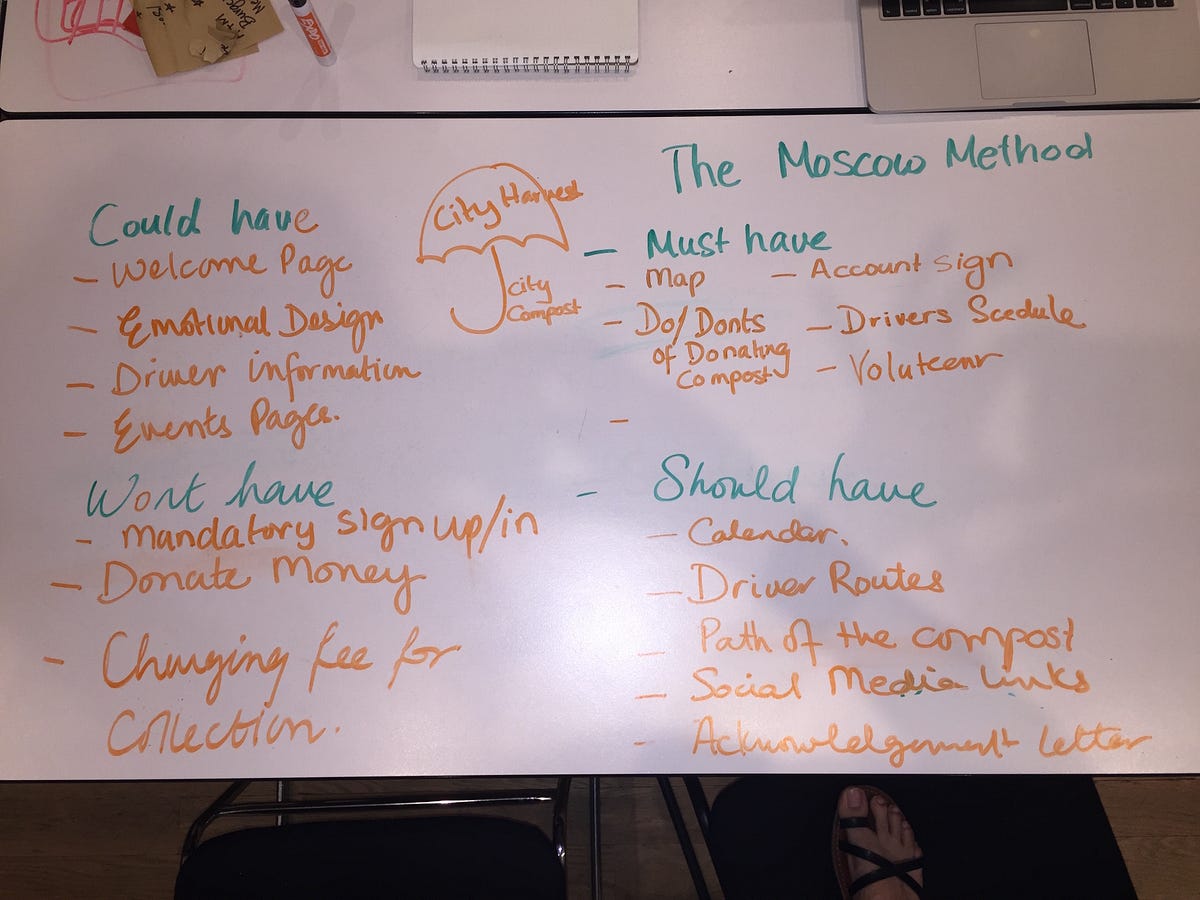 The Moscow Method
City Harvest
City
Compost
Could have
- Welcome Page
- Emotional Design
- Driver information
- Events Pages.
Wont have
- Mandatory sign up/in
- Donate Money
- Charging fee for
Collection.
- Must have
- Map
- Do/Donts
of Donating
Compost
-
- Account sign
- Drivers Scedule
- Voluteenr
- Should have
- Calendar.
- Driver Routes
- Path of the compost
- Social Media Links
- Acknowlelgement letter
EXPO